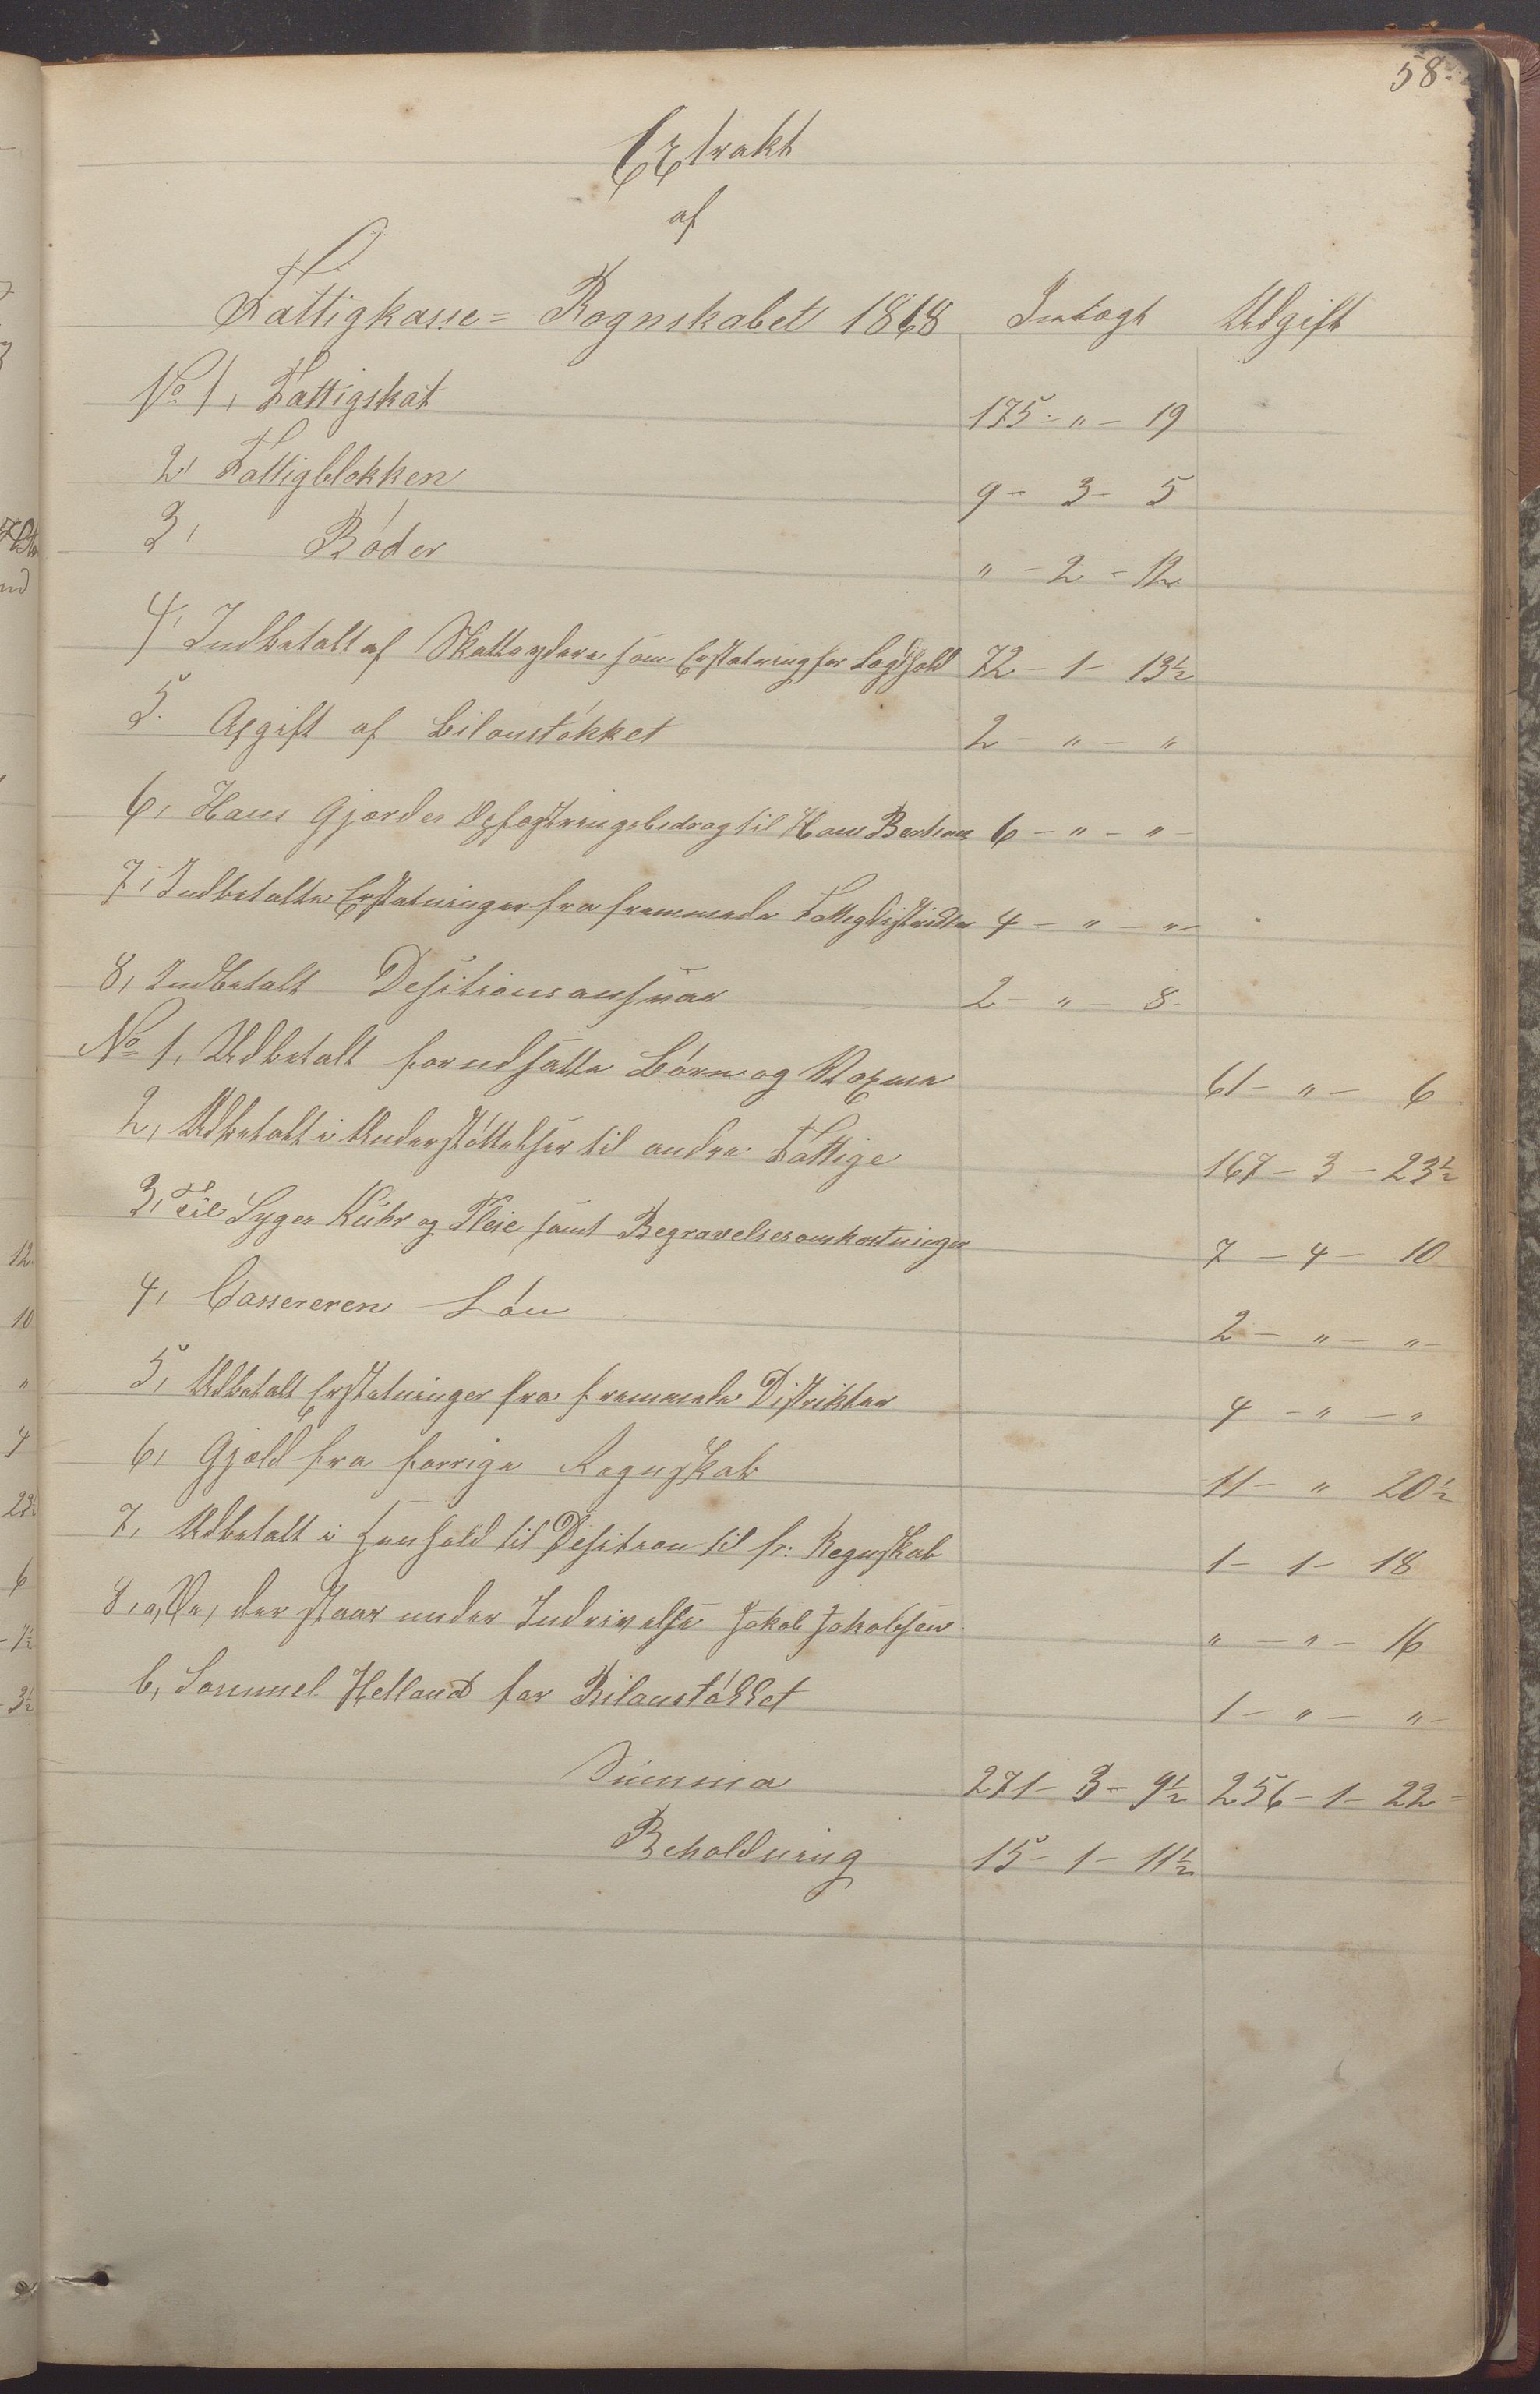 58.
Extrakt
af
Fattigkasse- Regnskabet 1868 Indtægt Udgift
No 1, Fattigskat 175 - " - 19
2, Fattigblokken 9 - 3 - 5
3, Bøder " - 2 - 12
4, Indbetalt af Skatteydere som Erstatning for Lægdhold 72 - 1 - 13½
5. Afgift af Bilanstøkket 2 - " - "
6, Hans Gjerdes Opfostringsbedrag til Hans 6 - " - " -
7, Indbetalte Erstatninger fra fremmede Fattigdistrikter 4 - " - " -
8, Indbetalt Desitionsansvar 2 - " - 8 -
No 1, Udbetalt for udsatte Børn og Voxne 61 - " - 6
2, Udbetalt i Understøttelser til andre Fattige 167 - 3 - 23½
3, Til Syges Kuhr og Pleie samt Begravelsesomkostninger 7 - 4 - 10
4, Cassereren Løn 2 - " - " -
5, Udbetalt Erstatninger fra fremmede Distrikter 4 - " - "
6, Gjæld fra forrige Regnskab 11 - " 20½
7, Udbetalt i Henhold til Desition til fr: Regnskab 1 - 1 - 18
8, a, der staar under Inddrivelse Jakob Jakobsen " - " - 16
b, Sammuel Helland for Bilanstøkket 1 - " - " -
Summa 271 - 3 - 9½ 256 - 1 - 22 -
Beholdning 15 - 1 - 11½
12
10
"
4
22½
6
- 7½
- 3½